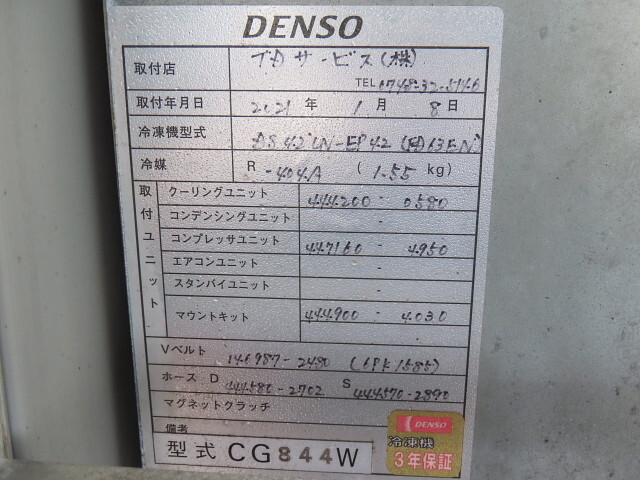 DENSO
取付店 TDサービス(株)
TEL 0748-32-5146
取付年月日 2021年 1月 8日
冷凍機型式
冷媒 R-404A (1.55 kg)
取付ユニット
クーリングユニット 444200-0580
コンデンシングユニット -
コンプレッサユニット 447160-4950
エアコンユニット -
スタンバイユニット -
マウントキット 444900-4030
-
Vベルト 146987-2480 (6PK1585)
ホース D 444580-2702 S 444570-2890
マグネットクラッチ
備考
型式 CG844W
DENSO
冷凍機
3年保証